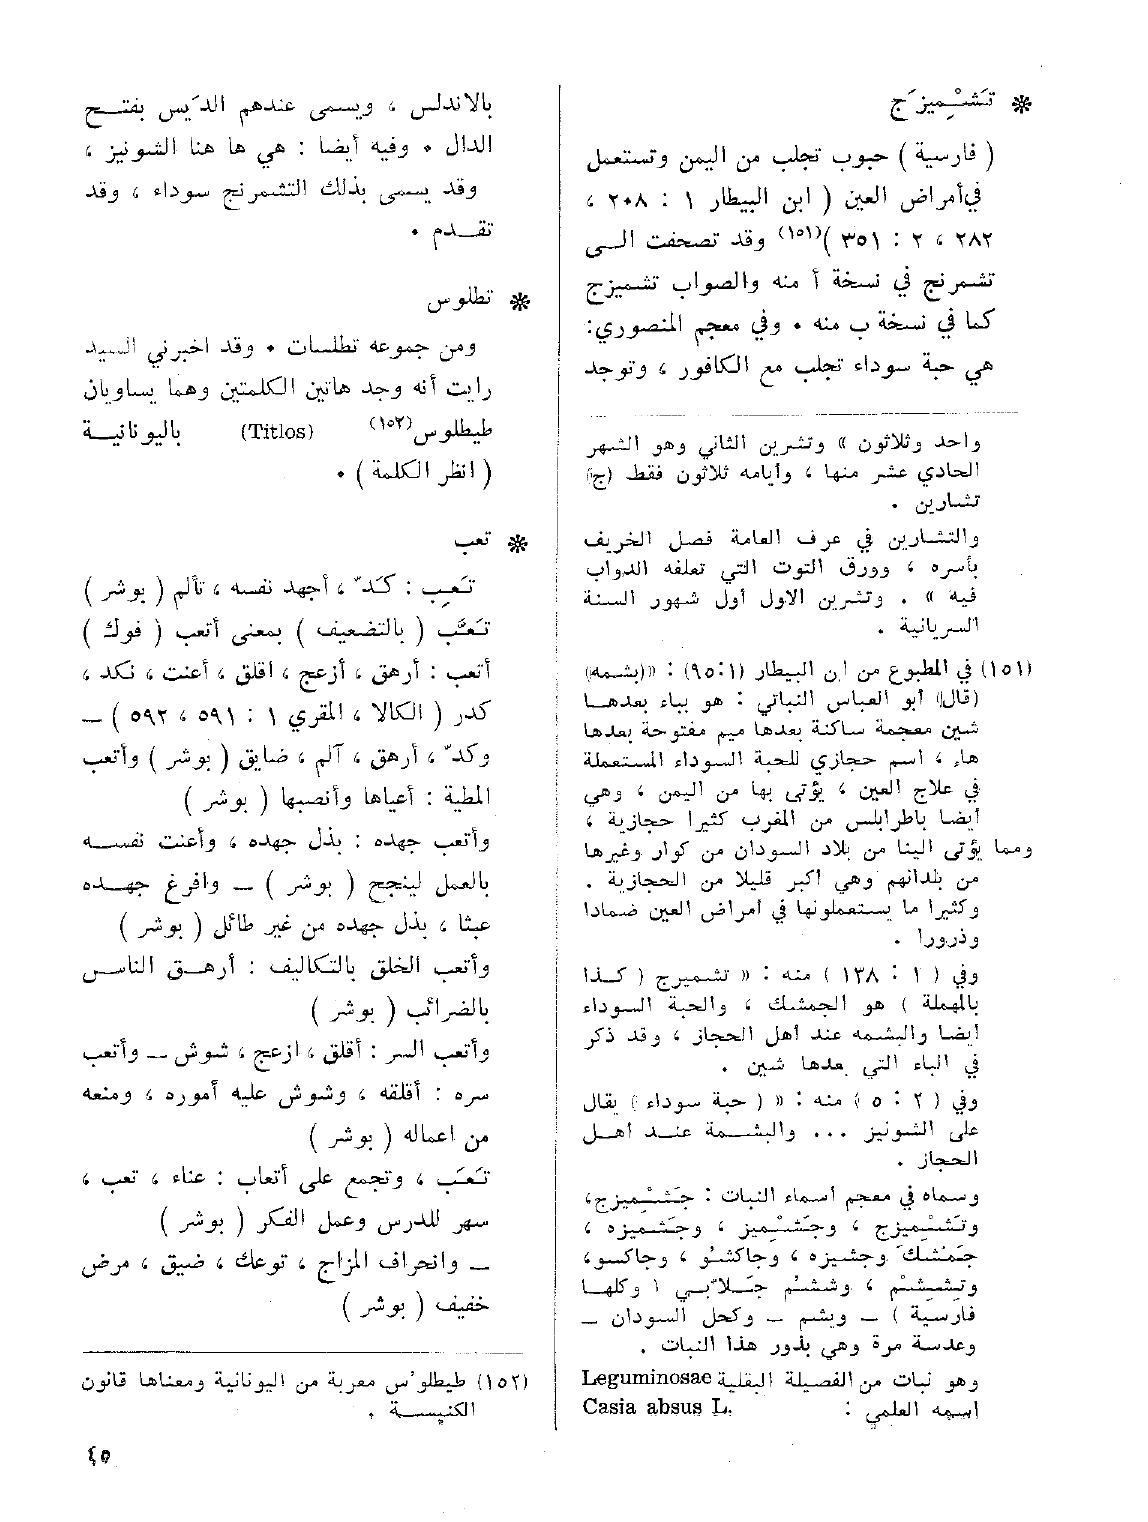 ✽ تَشْمِيزَج
( فارسية ) حبوب تجلب من اليمن وتستعمل
في أمراض العين ( ابن البيطار ١ : ٢٠٨ ،
٢٨٢ ، ٢ : ٣٥١ )(١٥١) وقد تصحفت الى
تشمرنج في نسخة أ منه والصواب تشميزج
كما في نسخة ب منه . وفي معجم المنصوري:
هي حبة سوداء تجلب مع الكافور ، وتوجد
واحد وثلاثون » وتشرين الثاني وهو الشهر
الحادي عشر منها ، وأيامه ثلاثون فقط (ج)
تشارين .
والتشارين في عرف العامة فصل الخريف
بأسره ، وورق التوت التي تعلفه الدواب
فيه » . وتشرين الاول أول شهور السنة
السريانية .
(١٥١) في المطبوع من ابن البيطار (١:٩٥) : «(بشمه)
(قال) أبو العباس النباتي : هو بباء بعدها
شين معجمة ساكنة بعدها ميم مفتوحة بعدها
هاء ، اسم حجازي للحبة السوداء المستعملة
في علاج العين ، يؤتى بها من اليمن ، وهي
أيضا باطرابلس من المغرب كثيرا حجازية ،
ومما يؤتى الينا من بلاد السودان من كوار وغيرها
من بلدانهم وهي أكبر قليلا من الحجازية .
وكثيرا ما يستعملونها في أمراض العين ضمادا
وذرورا .
وفي ( ١ : ١٣٨ ) منه : « تشميرج ( كذا
بالمهملة ) هو الجمشك ، والحبة السوداء
أيضا والبشمه عند أهل الحجاز ، وقد ذكر
في الباء التي بعدها شين .
وفي ( ٢ : ٥ ) منه : « ( حبة سوداء ) يقال
على الشونيز ... والبشمة عند اهل
الحجاز .
وسماه في معجم أسماء النبات : جَشْمِيزج،
وتَشْمِيزج ، وجَشْمِيز ، وجَشْميزه ،
جَمْشك وجشيزه ، وجاكشو ، وجاكسو،
وتِشمِشْم ، وششْم جَلّابي ( وكلها
فارسية ) – وبشم – وكحل السودان –
وعدسة مرة وهي بذور هذا النبات .
وهو نبات من الفصيلة البقلية Leguminosae
اسمه العلمي : Casia absus L.
بالاندلس ، ويسمى عندهم الدَيس بفتح
الدال . وفيه أيضا : هي ها هنا الشونيز ،
وقد يسمى بذلك التشمرنج سوداء ، وقد
تقدم .
✽ تطلوس
ومن جموعه تطلسات . وقد اخبرني السيد
رايت أنه وجد هاتين الكلمتين وهما يساويان
طيطلوس(١٥٢) (Titlos) باليونانية
( انظر الكلمة ) .
✽ تعب
تَعِب : كَدّ ، أجهد نفسه ، تألم ( بوشر )
تَعَّب ( بالتضعيف ) بمعنى أتعب ( فوك )
أتعب : أرهق ، أزعج ، اقلق ، أعنت ، نكد ،
كدر ( الكالا ، المقري ١ : ٥٩١ ، ٥٩٢ ) –
وكدّ ، أرهق ، آلم ، ضايق ( بوشر ) وأتعب
المطية : أعياها وأنصبها ( بوشر )
وأتعب جهده : بذل جهده ، وأعنت نفسه
بالعمل لينجح ( بوشر ) – وافرغ جهده
عبثا ، بذل جهده من غير طائل ( بوشر )
وأتعب الخلق بالتكاليف : أرهق الناس
بالضرائب ( بوشر )
وأتعب السر : أقلق ، ازعج ، شوش – وأتعب
سره : أقلقه ، وشوش عليه أموره ، ومنعه
من اعماله ( بوشر )
تَعَب ، وتجمع على أتعاب : عناء ، تعب ،
سهر للدرس وعمل الفكر ( بوشر )
– وانحراف المزاج ، توعك ، ضيق ، مرض
خفيف ( بوشر )
(١٥٢) طيطلوُس معربة من اليونانية ومعناها قانون
الكنيسة .
٤٥